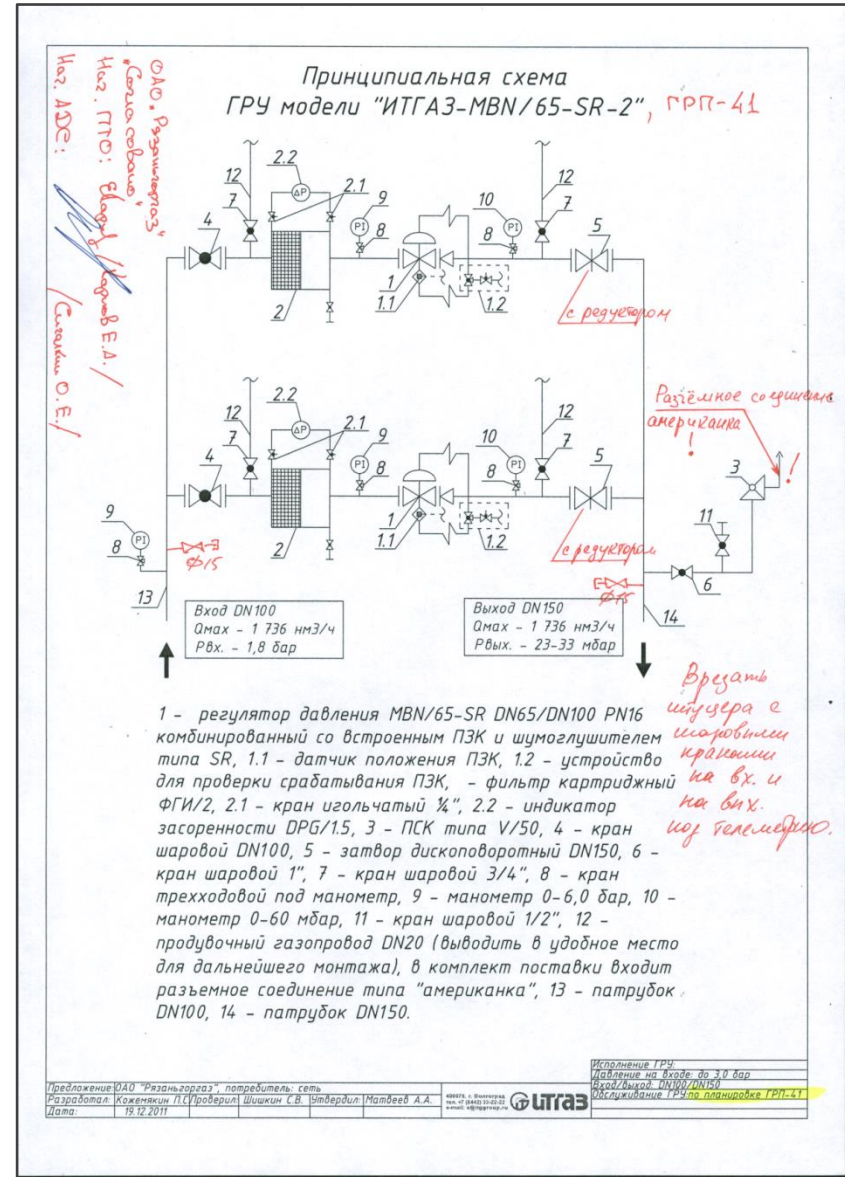 Принципиальная схема
ГРУ модели "ИТГАЗ-MBN/65-SR-2", ГРП-41
ОАО "Рязаньгоргаз"
"Согласовано"
Нач. ПТО: /Карпов Е.А./
Нач. АДС: /Сигалкин О.Е./
12
2.2
2.1
12
7
ΔP
9
10
7
4
PI
PI
5
8
8
1
1.1
1.2
2
с редуктором
12
2.2
2.1
12
7
ΔP
9
10
7
4
PI
PI
5
8
8
1
1.1
1.2
2
с редуктором
Разъёмное соединение
американка
!
!
3
11
6
9
PI
8
ф15
13
ф15
14
Вход DN100
Qmax - 1 736 нм3/ч
Pвх. - 1,8 бар
Выход DN150
Qmax - 1 736 нм3/ч
Pвых. - 23-33 мбар
Врезать
штуцера с
шаровыми
кранами
на вх. и
на вых.
под телеметрию.
1 - регулятор давления MBN/65-SR DN65/DN100 PN16
комбинированный со встроенным ПЗК и шумоглушителем
типа SR, 1.1 - датчик положения ПЗК, 1.2 - устройство
для проверки срабатывания ПЗК, - фильтр картриджный
ФГИ/2, 2.1 - кран игольчатый ¼", 2.2 - индикатор
засоренности DPG/1.5, 3 - ПСК типа V/50, 4 - кран
шаровой DN100, 5 - затвор дископоворотный DN150, 6 -
кран шаровой 1", 7 - кран шаровой 3/4", 8 - кран
трехходовой под манометр, 9 - манометр 0-6,0 бар, 10 -
манометр 0-60 мбар, 11 - кран шаровой 1/2", 12 -
продувочный газопровод DN20 (выводить в удобное место
для дальнейшего монтажа), в комплект поставки входит
разъемное соединение типа "американка", 13 - патрубок
DN100, 14 - патрубок DN150.
Исполнение ГРУ:
Давление на входе: до 3,0 бар
Вход/выход: DN100/DN150
Обслуживание ГРУ: по планировке ГРП-41
Предложение: ОАО "Рязаньгоргаз", потребитель: сеть
Разработал: Кожемякин П.С. Проверил: Шишкин С.В. Утвердил: Матвеев А.А.
Дата: 19.12.2011
итгаз